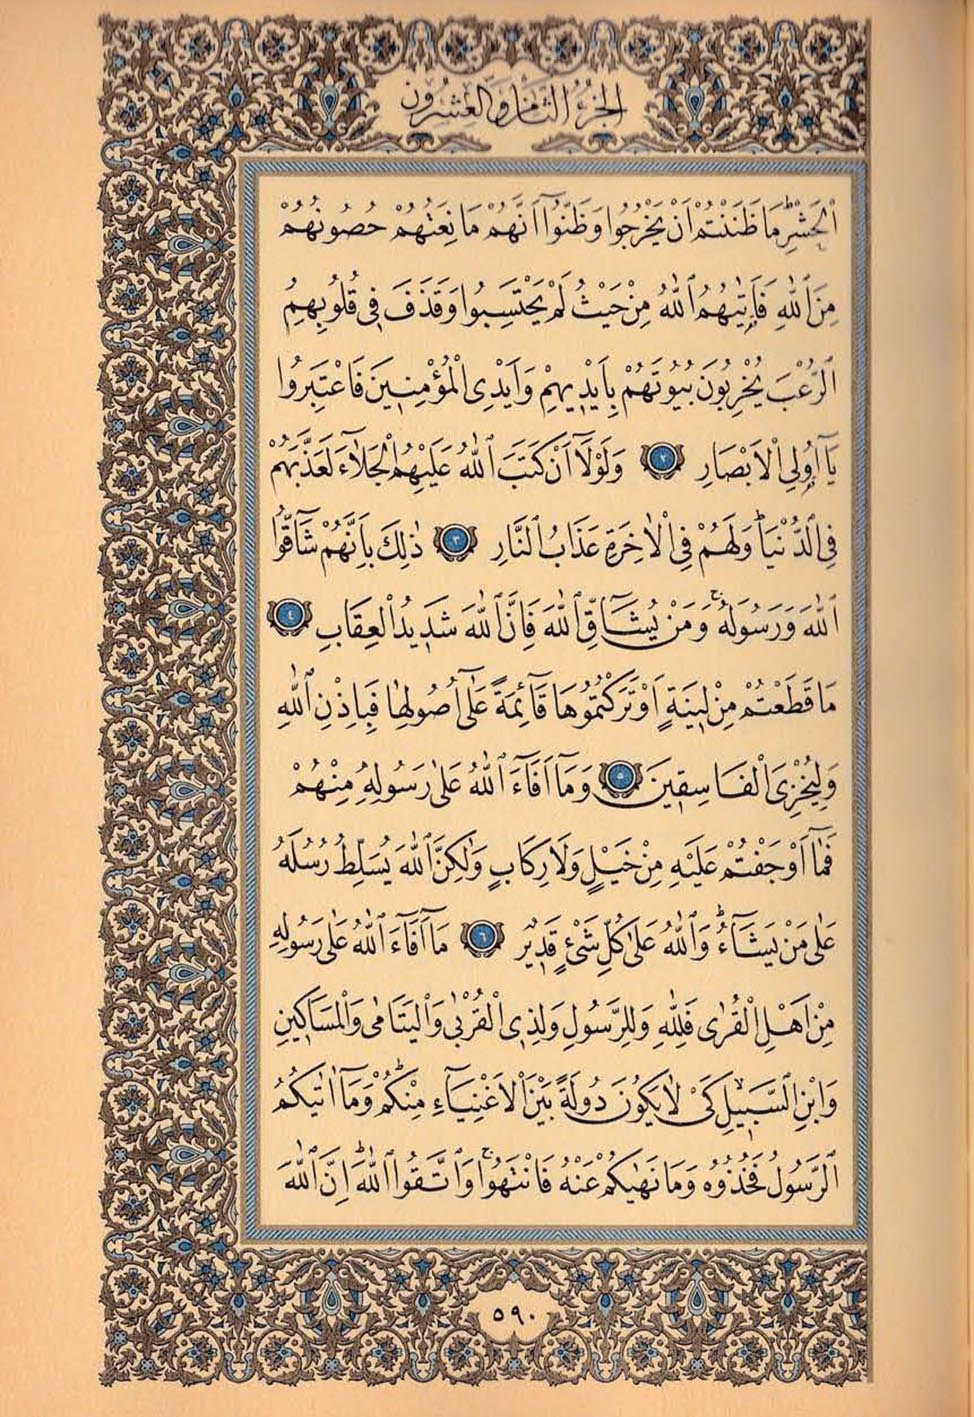 الجزء الثامن والعشرون
الْحَشْرِۜ مَا ظَنَنْتُمْ اَنْ يَخْرُجُوا وَظَنُّٓوا اَنَّهُمْ مَانِعَتُهُمْ حُصُونُهُمْ
مِنَ اللّٰهِ فَاَتٰيهُمُ اللّٰهُ مِنْ حَيْثُ لَمْ يَحْتَسِبُوا وَقَذَفَ فِى قُلُوبِهِمُ
الرُّعْبَ يُخْرِبُونَ بُيُوتَهُمْ بِاَيْدِيهِمْ وَاَيْدِى الْمُؤْمِنِينَ فَاعْتَبِرُوا
يَٓا اُو۬لِى الْاَبْصَارِ ﴿٢﴾ وَلَوْلَٓا اَنْ كَتَبَ اللّٰهُ عَلَيْهِمُ الْجَلَٓاءَ لَعَذَّبَهُمْ
فِى الدُّنْيَاۜ وَلَهُمْ فِى الْاٰخِرَةِ عَذَابُ النَّارِ ﴿٣﴾ ذٰلِكَ بِاَنَّهُمْ شَٓاقُّوا
اللّٰهَ وَرَسُولَهُۚ وَمَنْ يُشَٓاقِّ اللّٰهَ فَاِنَّ اللّٰهَ شَدِيدُ الْعِقَابِ ﴿٤﴾
مَا قَطَعْتُمْ مِنْ لِينَةٍ اَوْ تَرَكْتُمُوهَا قَٓائِمَةً عَلٰٓى اُصُولِهَا فَبِاِذْنِ اللّٰهِ
وَلِيُخْزِىَ الْفَاسِقِينَ ﴿٥﴾ وَمَٓا اَفَٓاءَ اللّٰهُ عَلٰى رَسُولِهِ مِنْهُمْ
فَمَٓا اَوْجَفْتُمْ عَلَيْهِ مِنْ خَيْلٍ وَلَا رِكَابٍ وَلٰكِنَّ اللّٰهَ يُسَلِّطُ رُسُلَهُ
عَلٰى مَنْ يَشَٓاءُۜ وَاللّٰهُ عَلٰى كُلِّ شَىْءٍ قَدِيرٌ ﴿٦﴾ مَٓا اَفَٓاءَ اللّٰهُ عَلٰى رَسُولِهِ
مِنْ اَهْلِ الْقُرٰى فَلِلّٰهِ وَلِلرَّسُولِ وَلِذِى الْقُرْبٰى وَالْيَتَامٰى وَالْمَسَاكِينِ
وَابْنِ السَّبِيلِۙ كَىْ لَا يَكُونَ دُولَةً بَيْنَ الْاَغْنِيَٓاءِ مِنْكُمْۜ وَمَٓا اٰتٰيكُمُ
الرَّسُولُ فَخُذُوهُ وَمَا نَهٰيكُمْ عَنْهُ فَانْتَهُواۚ وَاتَّقُوا اللّٰهَۜ اِنَّ اللّٰهَ
٥٩٠